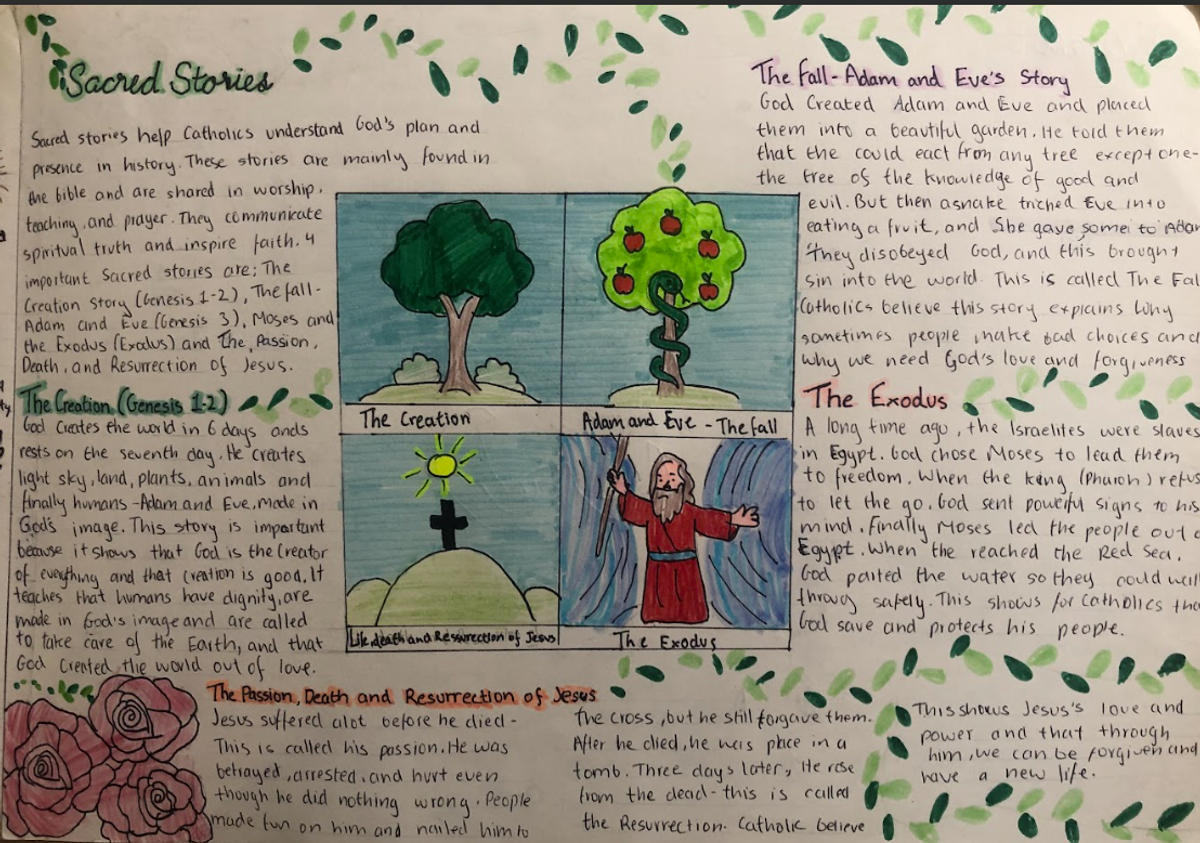 Sacred Stories
Sacred stories help Catholics understand God's plan and
presence in history. These stories are mainly found in
the bible and are shared in worship,
teaching, and prayer. They communicate
spiritual truth and inspire faith. 4
important Sacred stories are; The
Creation Story (Genesis 1-2), The fall-
Adam and Eve (Genesis 3), Moses and
the Exodus (Exodus) and The, Passion,
Death, and Resurrection of Jesus.
The Creation (Genesis 1-2)
God Creates the world in 6 days ands
rests on the seventh day. He creates
light sky, land, plants, animals and
finally humans -Adam and Eve, made in
God's image. This story is important
because it shows that God is the Creator
of everything and that creation is good. It
teaches that humans have dignity, are
made in God's image and are called
to take care of the Earth, and that
God created the world out of love.
The Creation
Adam and Eve - The fall
Life, death and Resurrection of Jesus
The Exodus
The Fall - Adam and Eve's Story
God Created Adam and Eve and placed
them into a beautiful garden. He told them
that the could eact from any tree except one-
the tree of the knowledge of good and
evil. But then asnake triched Eve into
eating a fruit, and She gave some to Adam
They disobeyed God, and this brought
sin into the world. This is called The Fal
Catholics believe this story explains Why
sometimes people make bad choices and
why we need God's love and forgiveness
The Exodus
A long time ago, the Israelites were slaves
in Egypt. God chose Moses to lead them
to freedom. When the king (Pharoh) refus
to let the go. God sent powerful signs to his
mind. Finally Moses led the people out o
Egypt. When the reached the Red Sea.
God parted the water so they could
throug safely. This shows for Catholics tha
God save and protects his people.
The Passion, Death and Resurrection of Jesus
Jesus suffered alot before he died -
This is called his passion. He was
betrayed, arrested, and hurt even
though he did nothing wrong. People
made fun on him and nailed him to
the cross, but he still forgave them.
After he died, he was place in a
tomb. Three days later, He rose
from the dead - this is called
the Resurrection. Catholic believe
This shows Jesus's love and
power and that through
him, we can be forgiven and
have a new life.